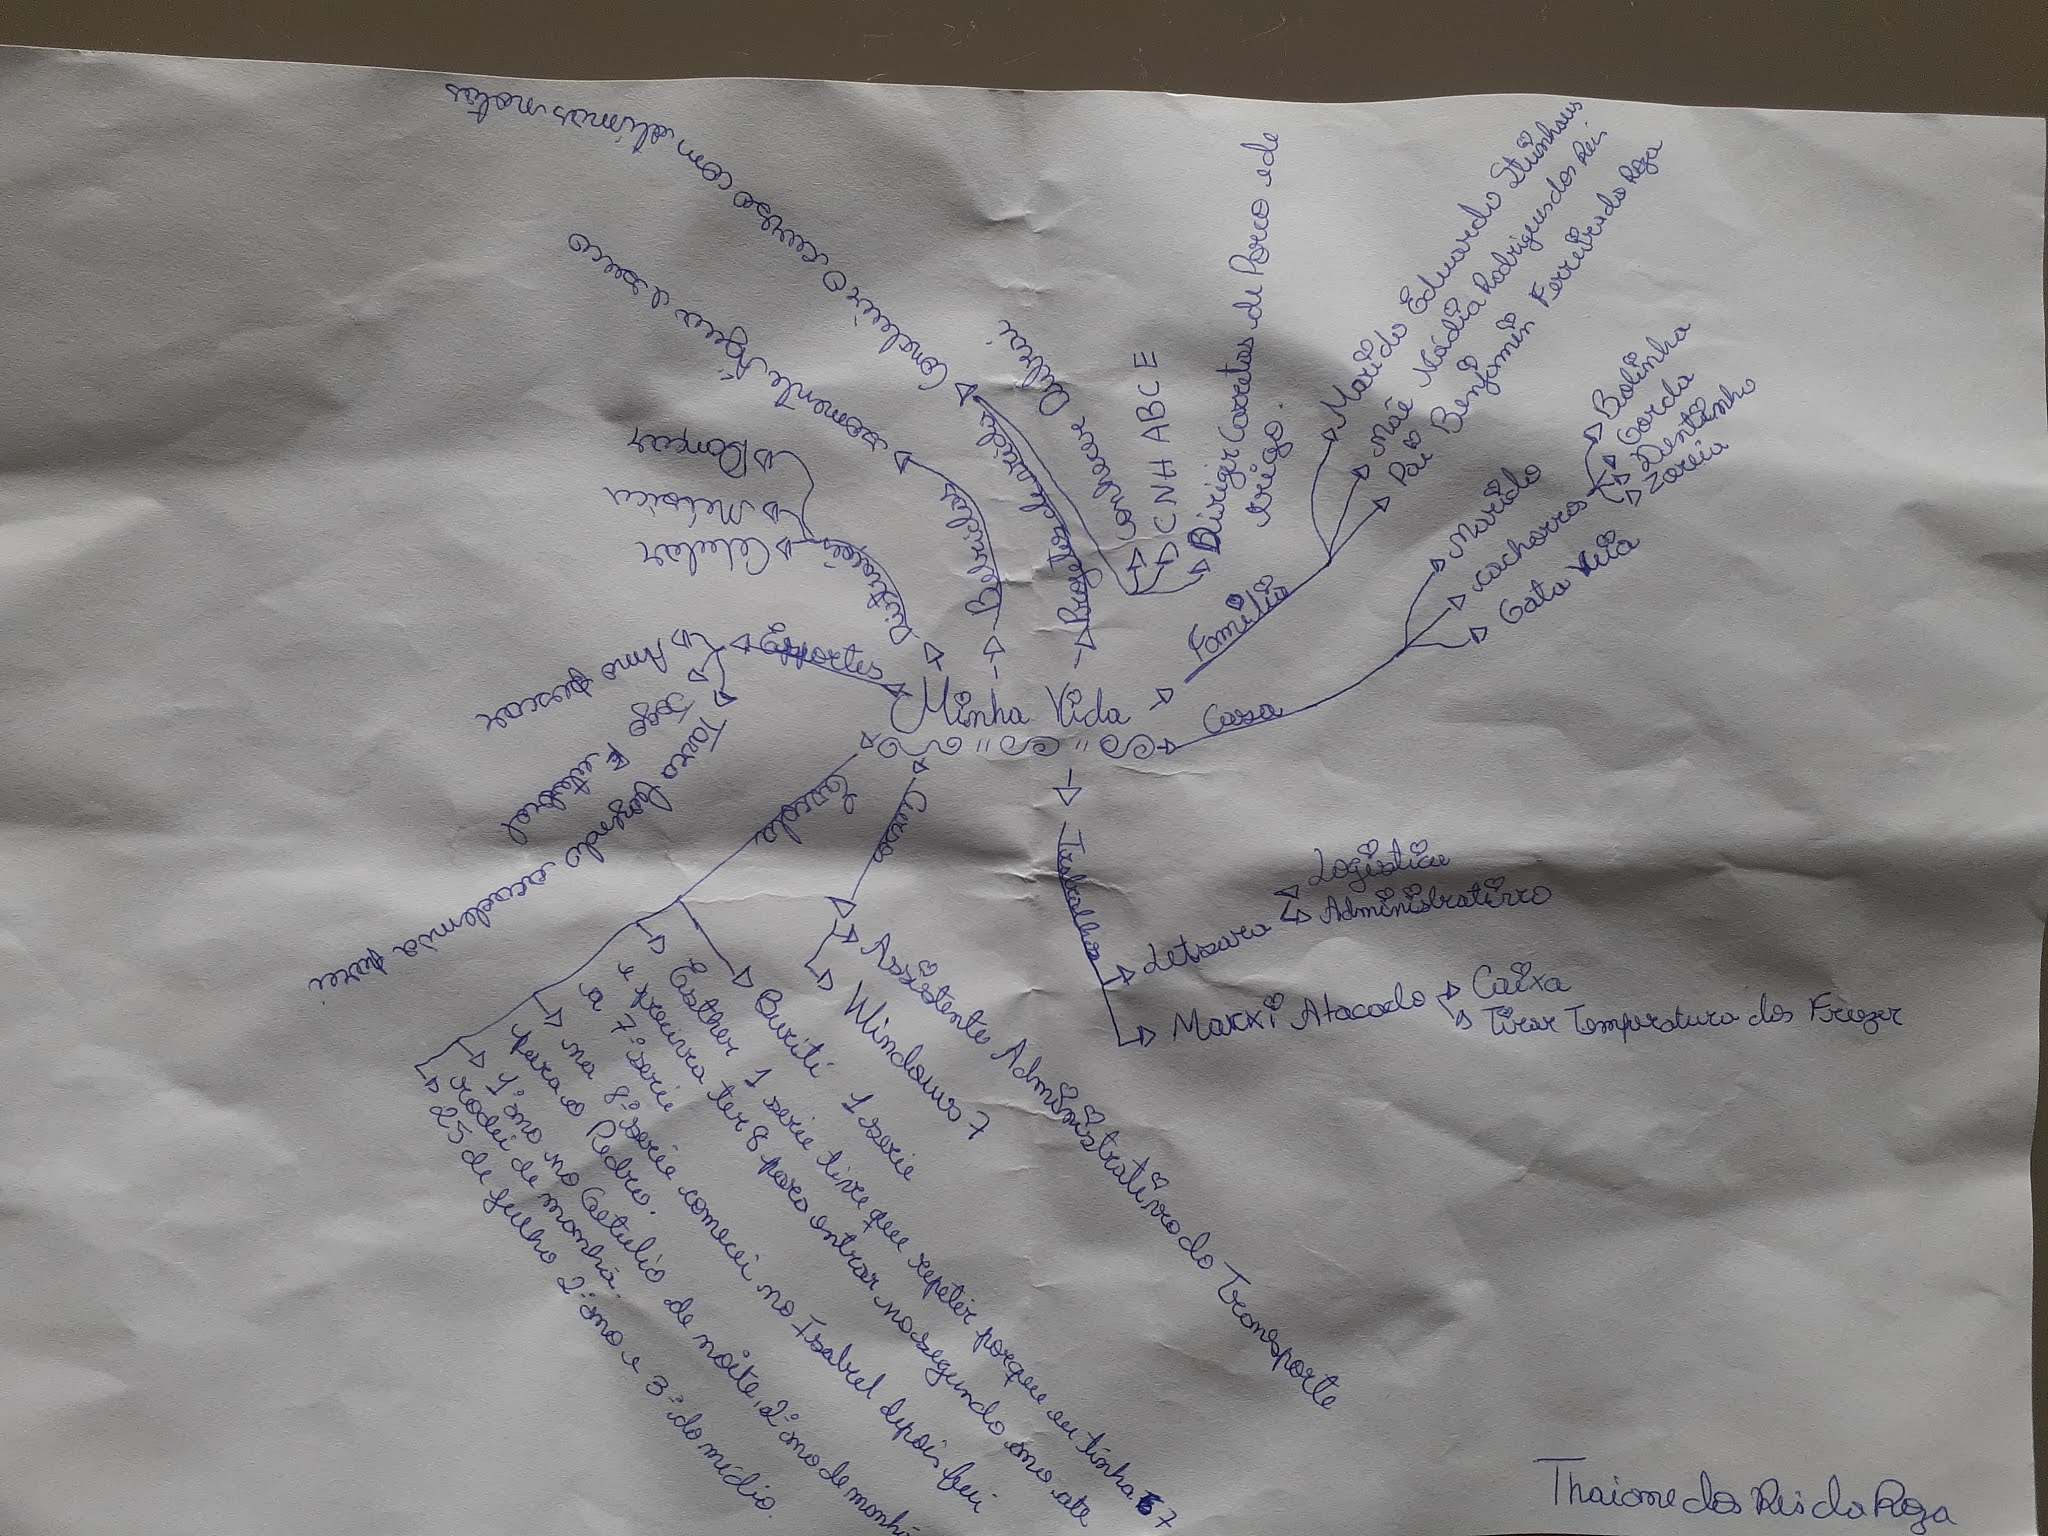 Minha Vida
Família
Marido Eduardo
Mãe Nádia Rodrigues dos Reis
Pai Benjamin Ferreira da Roza
Casa
Marido
Cachorros
Bolinha
Gorda
Dentinho
Zoreia
Gata
Trabalho
Letsara
Logistica
Administrativo
Maxxi Atacado
Caixa
Tirar Temperatura dos Freezer
Curso
Assistente Administrativo do Transporte
Windows 7
Escola
Buriti 1 serie
Esther 1 serie tive que repetir porque eu tinha 7
e precisva ter 8 para entrar no segundo ano ate
a 7ª serie
na 8ª serie comecei no Isabel depois fui
para o Pedro.
1º ano no Getulio de noite, 2º ano de manhã
rodei de manhã.
25 de julho 2º ano e 3º do médio.
Esportes
Amo pescar
Jogo Futebol
Tava fazendo academia parei
Distração
Celular
Música
Dançar
Bebidas
somente Água e suco
Profissionalizar
Concluir O curso com ótimas notas
conhecer
CNH ABCE
Dirigir Carretas de Porco e de
trigo.
Thaiane dos Reis da Roza